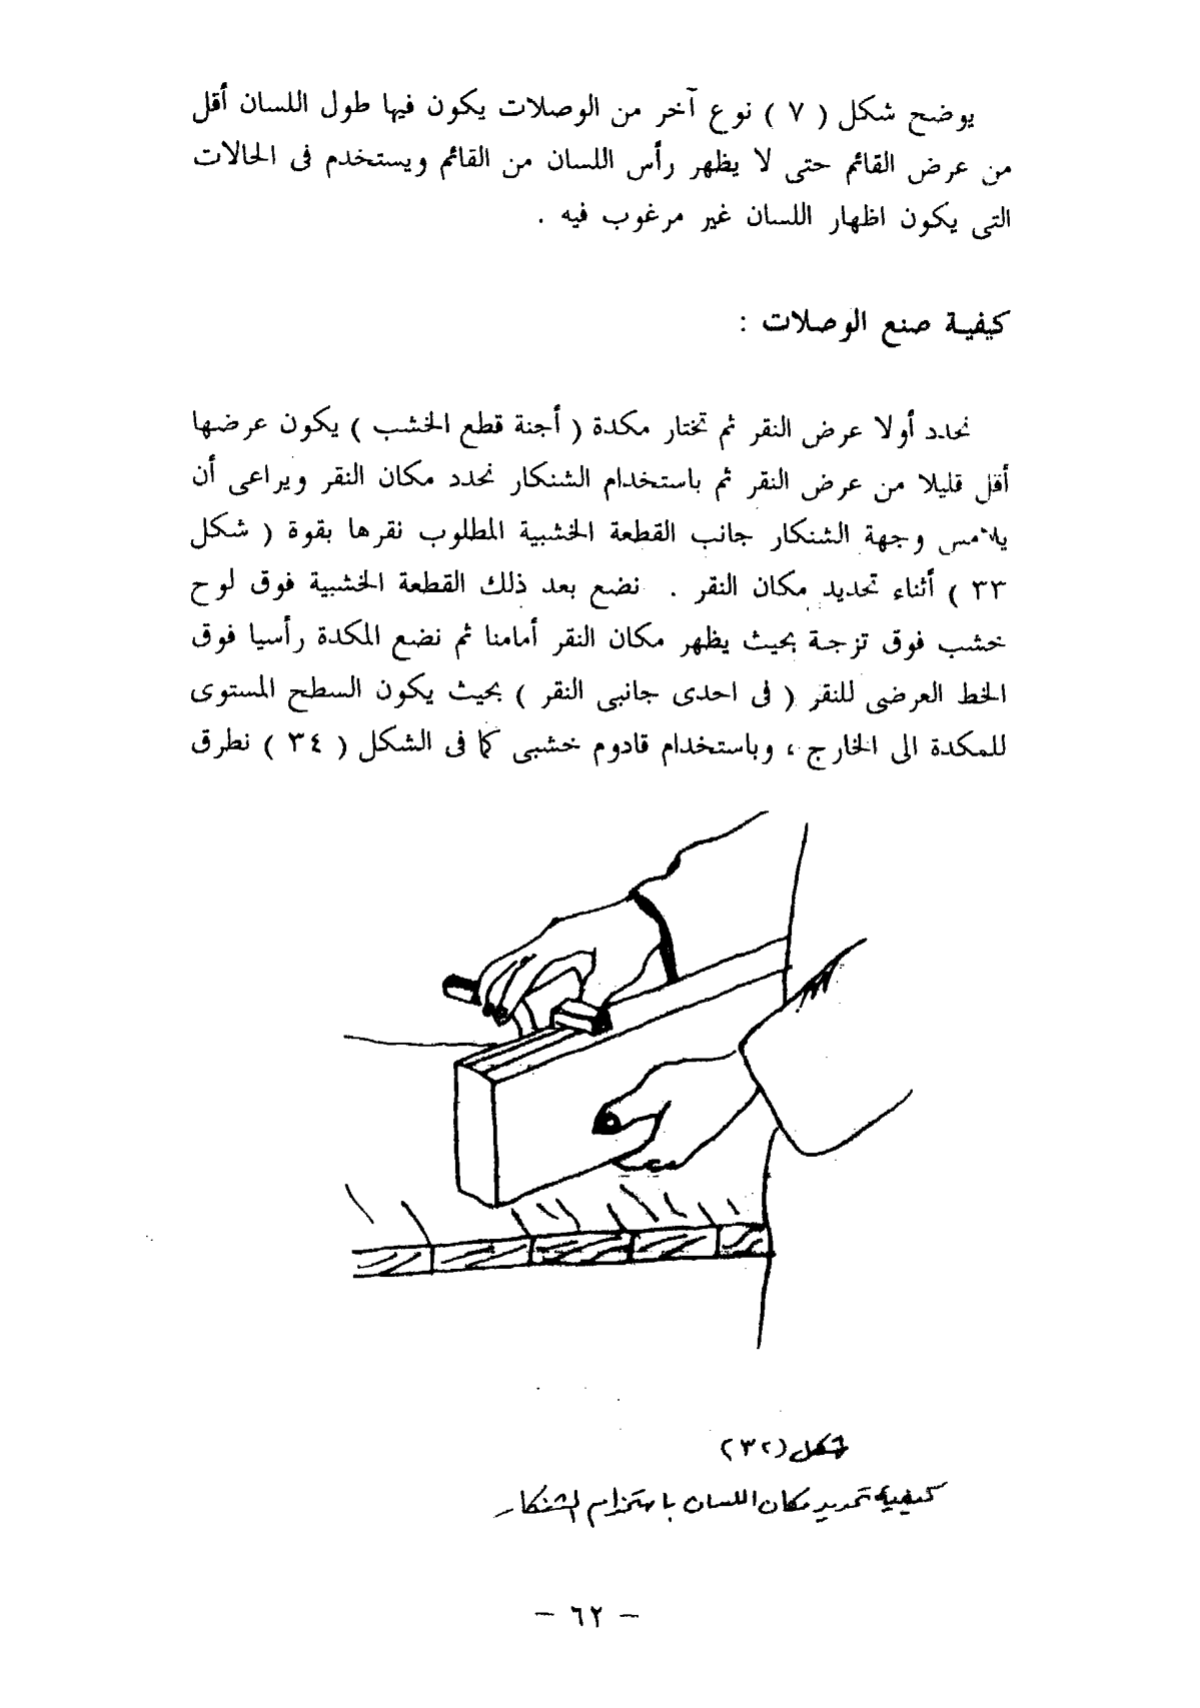 يوضح شكل ( ٧ ) نوع آخر من الوصلات يكون فيها طول اللسان أقل
من عرض القائم حتى لا يظهر رأس اللسان من القائم ويستخدم فى الحالات
التى يكون اظهار اللسان غير مرغوب فيه .
كيفية صنع الوصلات :
نحدد أولا عرض النقر ثم تختار مكدة ( أجنة قطع الخشب ) يكون عرضها
أقل قليلا من عرض النقر ثم باستخدام الشنكار نحدد مكان النقر ويراعى أن
يلامس وجهة الشنكار جانب القطعة الخشبية المطلوب نقرها بقوة ( شكل
٣٣ ) أثناء تحديد مكان النقر . نضع بعد ذلك القطعة الخشبية فوق لوح
خشب فوق تزجة بحيث يظهر مكان النقر أمامنا ثم نضع المكدة رأسيا فوق
الخط العرضى للنقر ( فى احدى جانبى النقر ) بحيث يكون السطح المستوى
للمكدة الى الخارج ، وباستخدام قادوم خشبى كما فى الشكل ( ٣٤ ) نطرق
شكل (٣٢)
كيفية تحديد مكان اللسان باستخدام الشنكار
– ٦٢ –